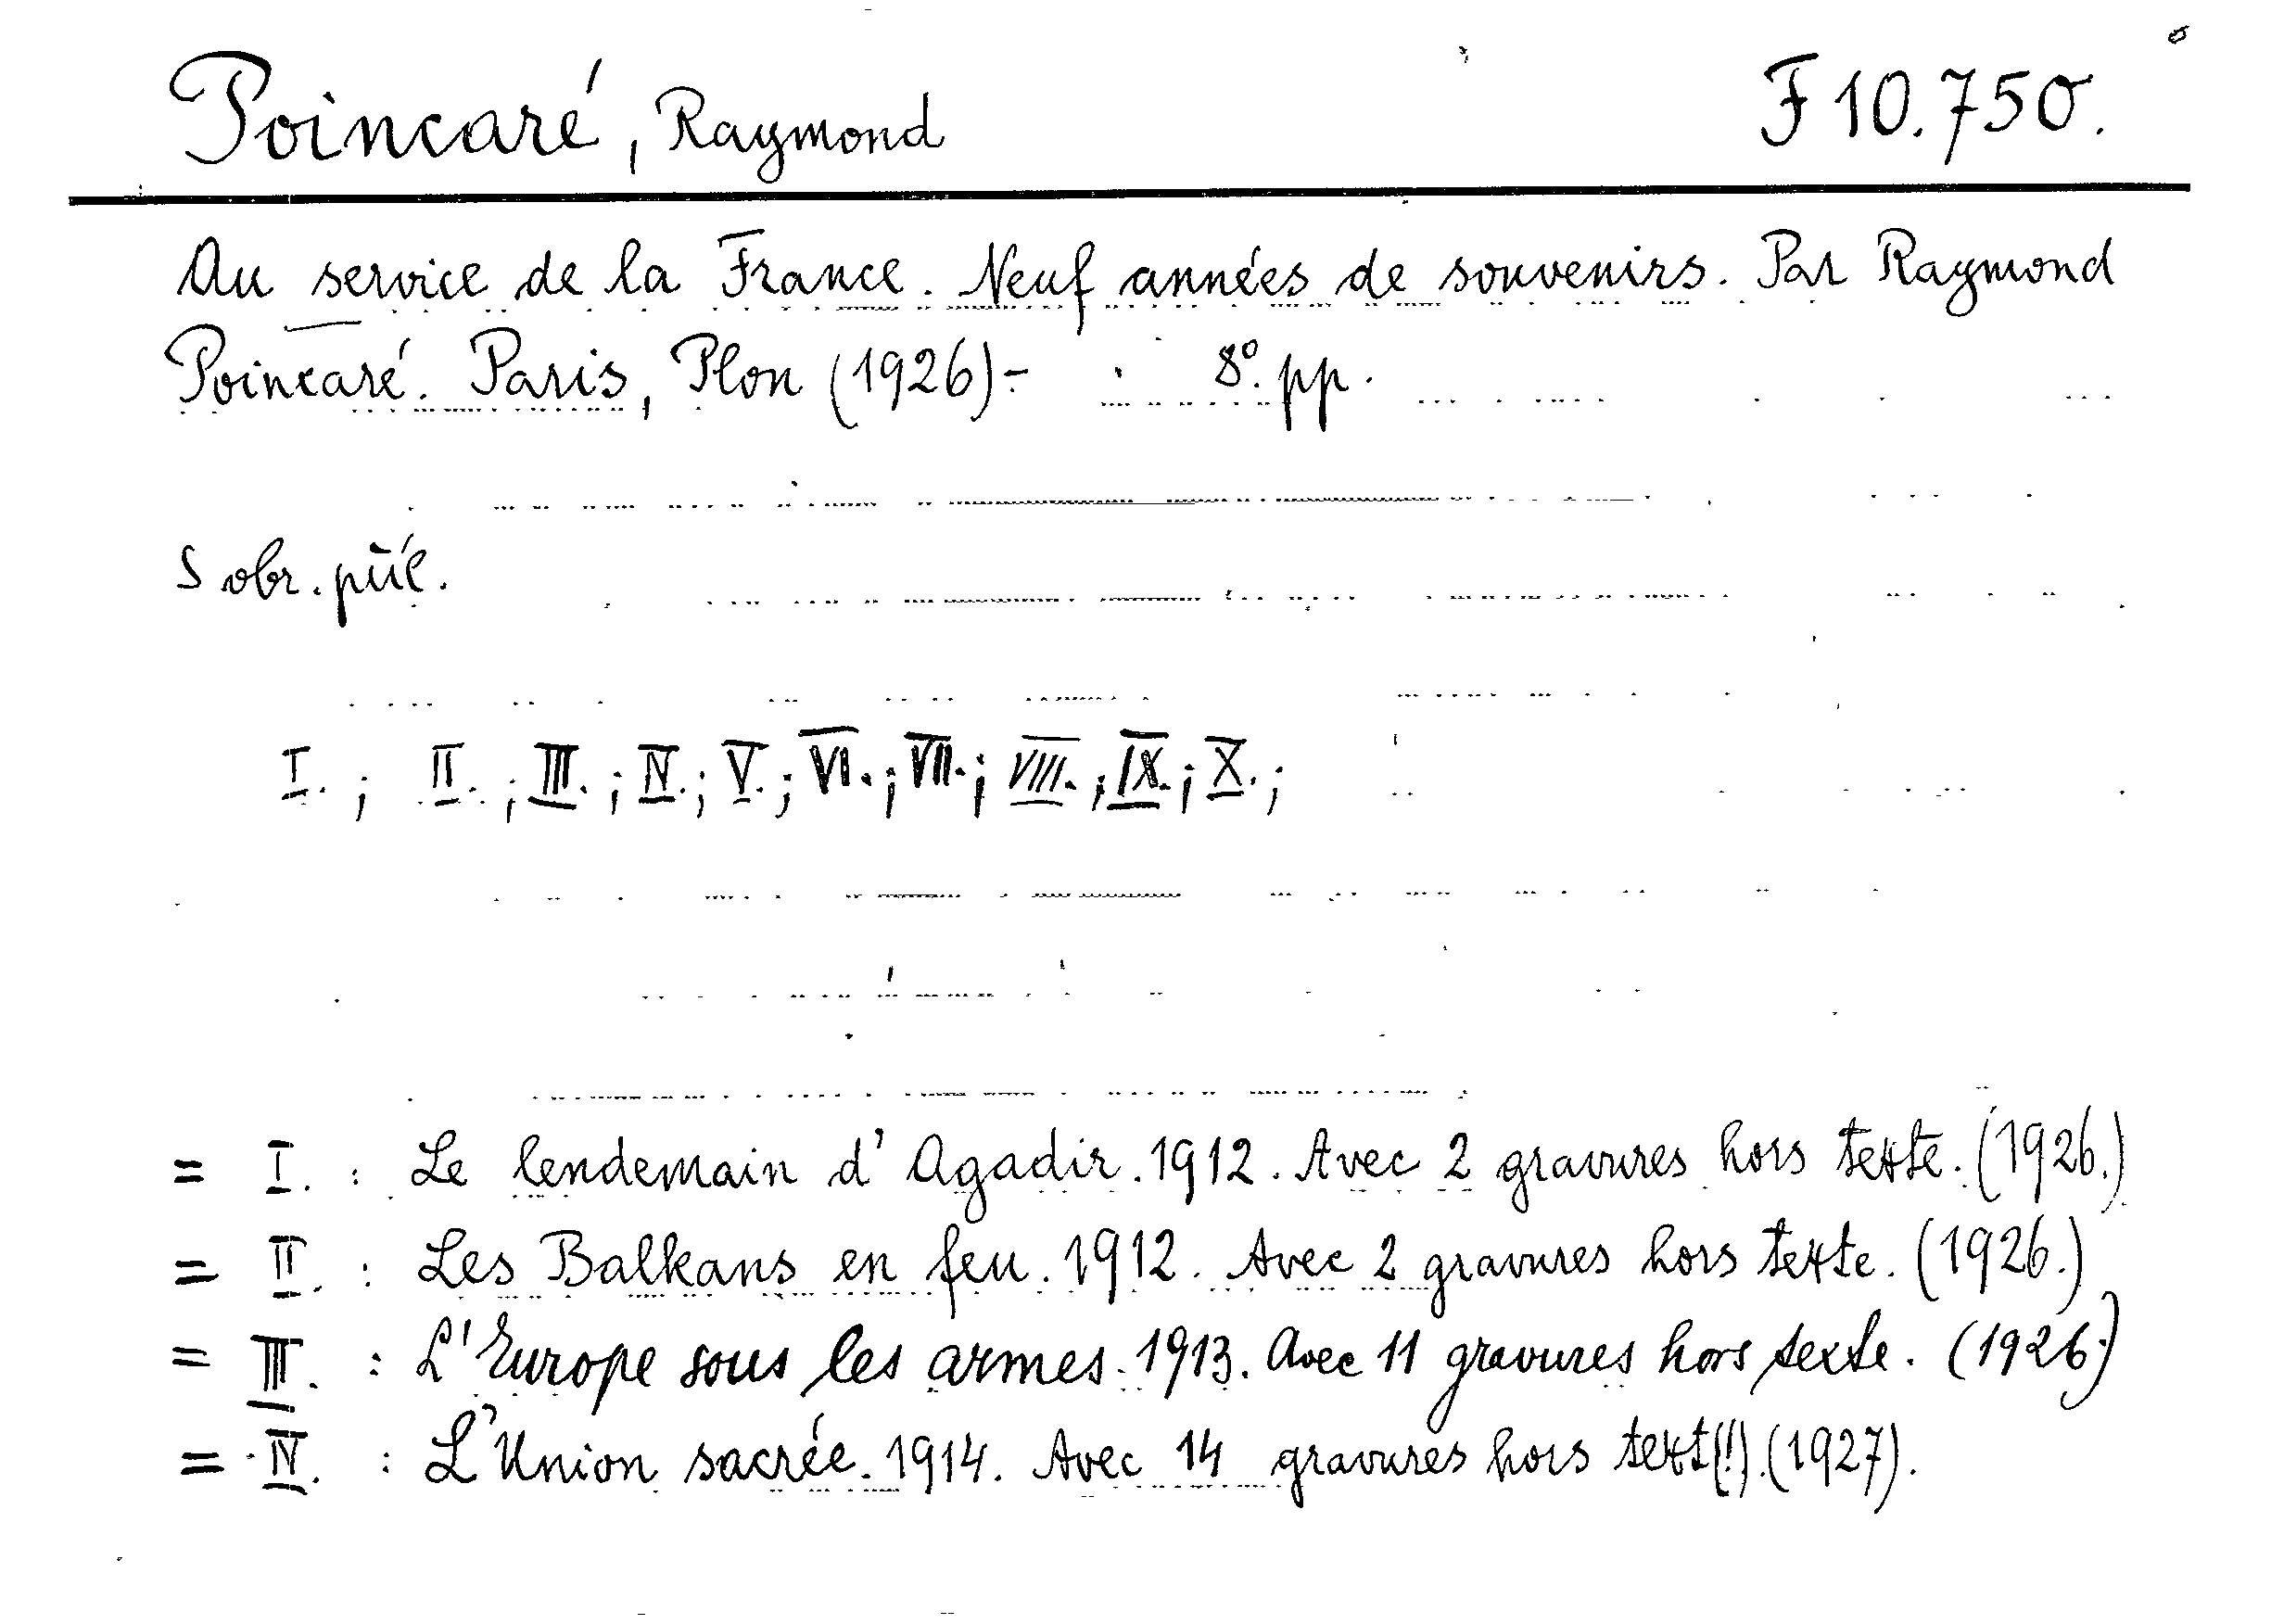 Poincaré, Raymond F 10.750.
Au service de la France. Neuf années de souvenirs. Par Raymond
Poincaré. Paris, Plon (1926)- 8° pp.
S obr. příl.
I.; II.; III.; IV.; V.; VI.; VII.; VIII.; IX.; X.;
= I. : Le lendemain d'Agadir. 1912. Avec 2 gravures hors texte. (1926.)
= II. : Les Balkans en feu. 1912. Avec 2 gravures hors texte. (1926.)
= III. : L'Europe sous les armes. 1913. Avec 11 gravures hors texte. (1926.)
= IV. : L'Union sacrée. 1914. Avec 14 gravures hors text(!). (1927).